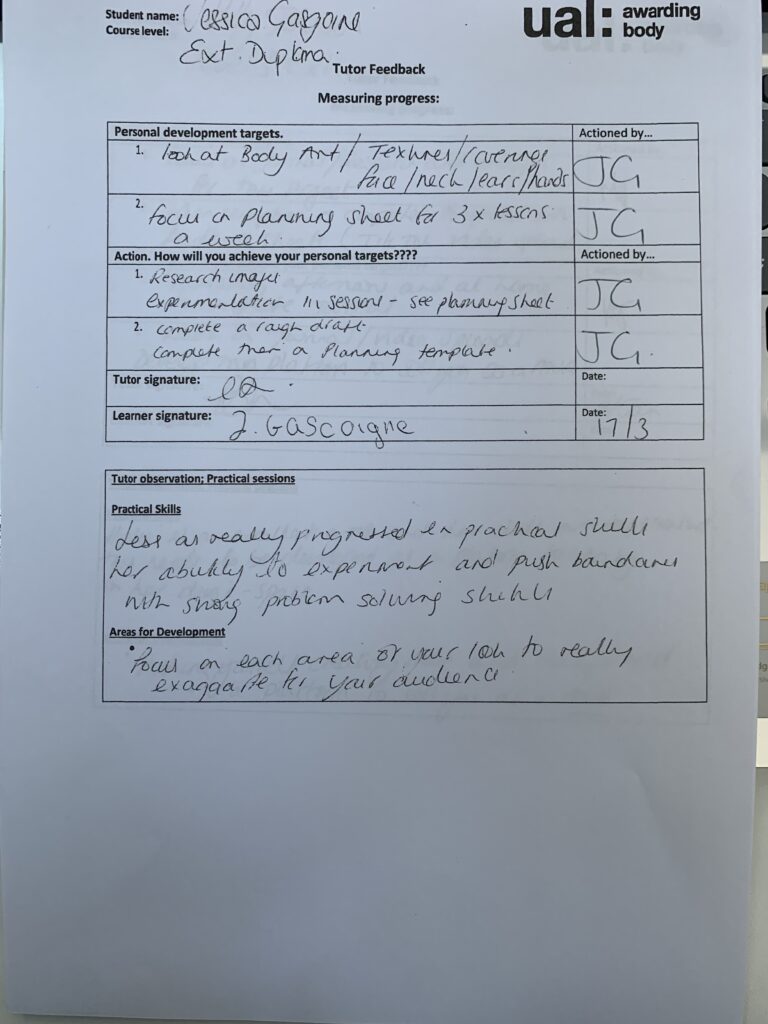 Student name: Jessica Gasgoine
Course level: Ext. Diploma.
ual: awarding body
Tutor Feedback
Measuring progress:
Personal development targets. Actioned by...
1. look at Body Art / Textures / coverage
face / neck / ears / hands JG
2. Focus on Planning sheet for 3 x lessons
a week. JG
Action. How will you achieve your personal targets???? Actioned by...
1. Research images
experimentation in sessions - see planning sheet JG
2. complete a rough draft
complete then a Planning template. JG.
Tutor signature: Date:
Learner signature: J. GASCOIGNE Date: 17/3
Tutor observation; Practical sessions
Practical Skills
Jess as really progressed in practical skills
her ability to experiment and push boundaries
with strong problem solving skills
Areas for Development
• Focus on each area of your look to really
exaggarate for your audience.